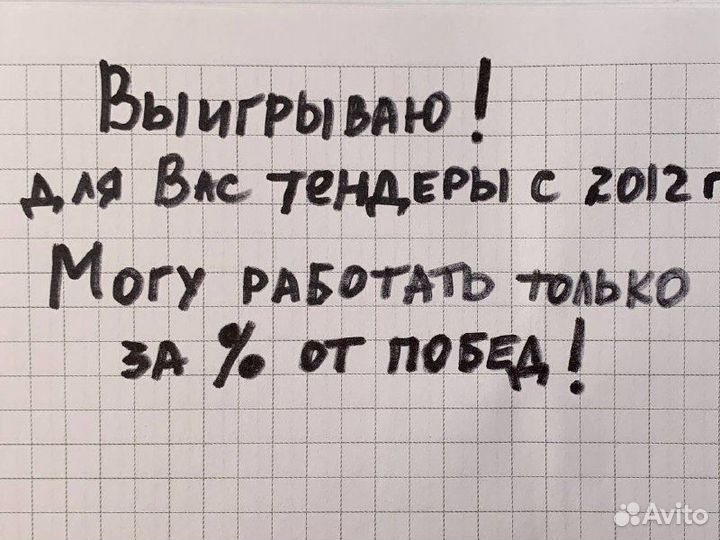 Выигрываю!
для Вас тендеры с 2012 г
Могу работать только
за % от побед!
Avito